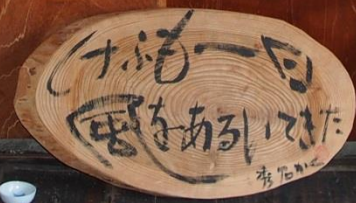 けふも一日
風をあるいてきた